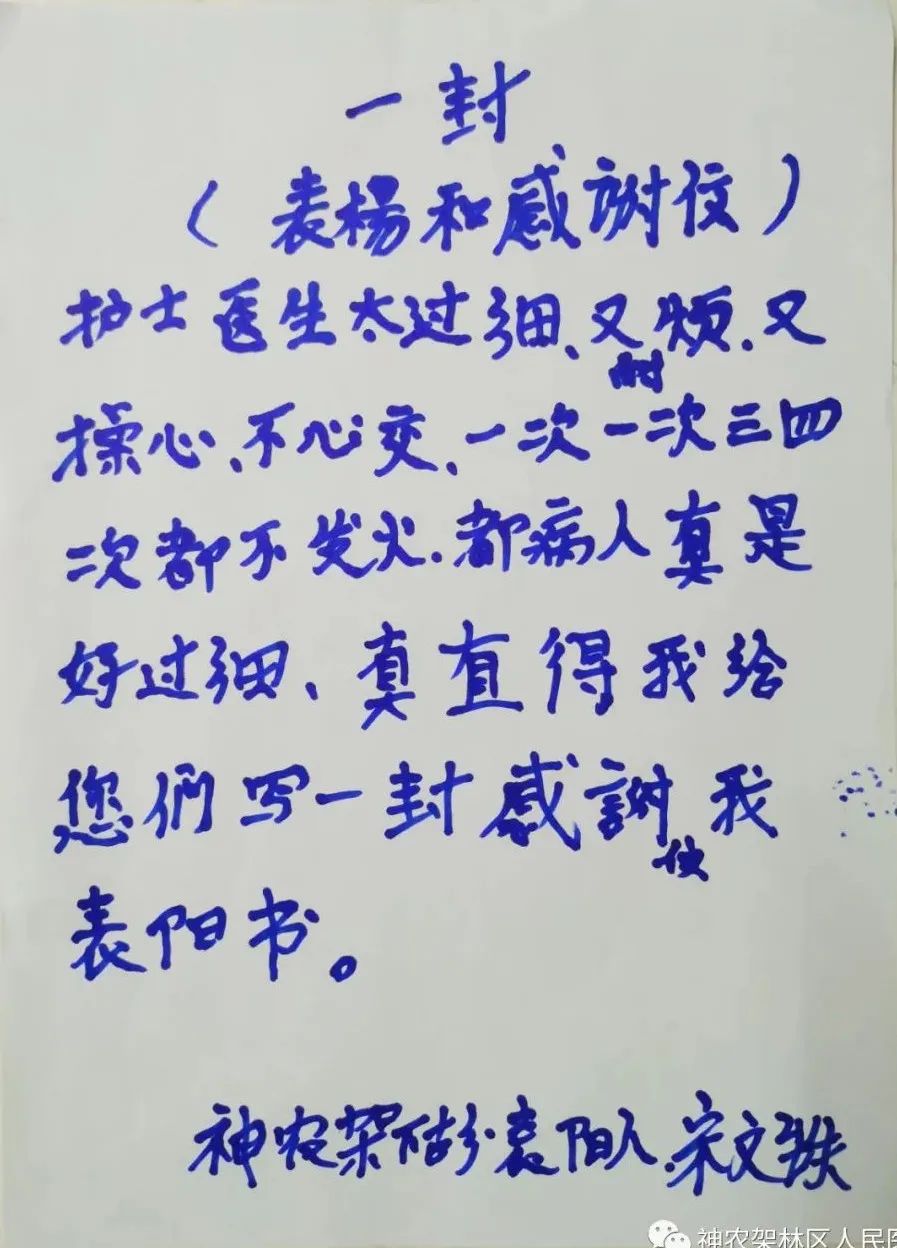 一封
（表楊和感謝仅）
护士医生太过细、又耐烦、又
操心、不心交、一次一次三四
次都不发火．都病人真是
好过细、真直得我给
您们写一封感謝 我
表阳书。
神农架 表阳人 宋文
神农架林区人民医